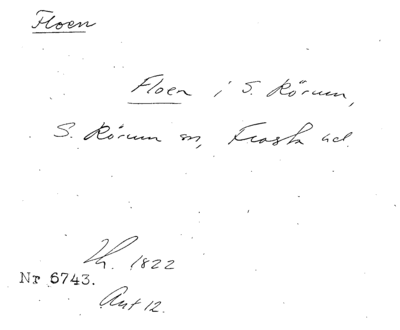 Floen
Floen i S. Rörum,
S. Rörum sn, Frosta hd
Lh. 1822
Nr 6743.
Ant 12.